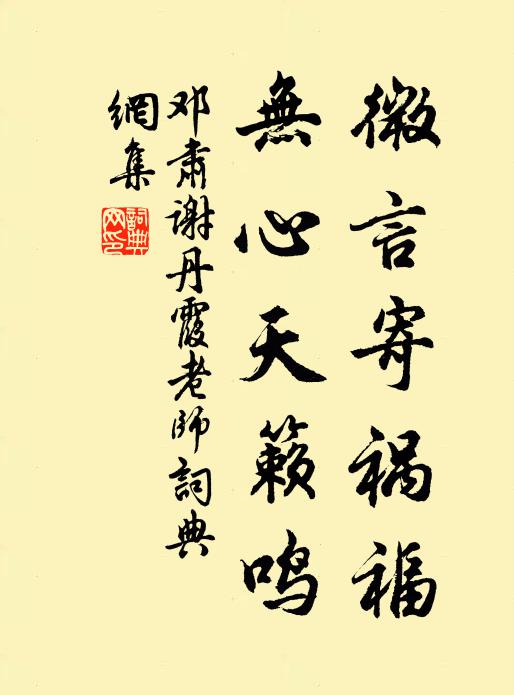 微言寄祸福
無心天籟鸣
邓肃谢丹霞老师詞典
網集
詞典
网印